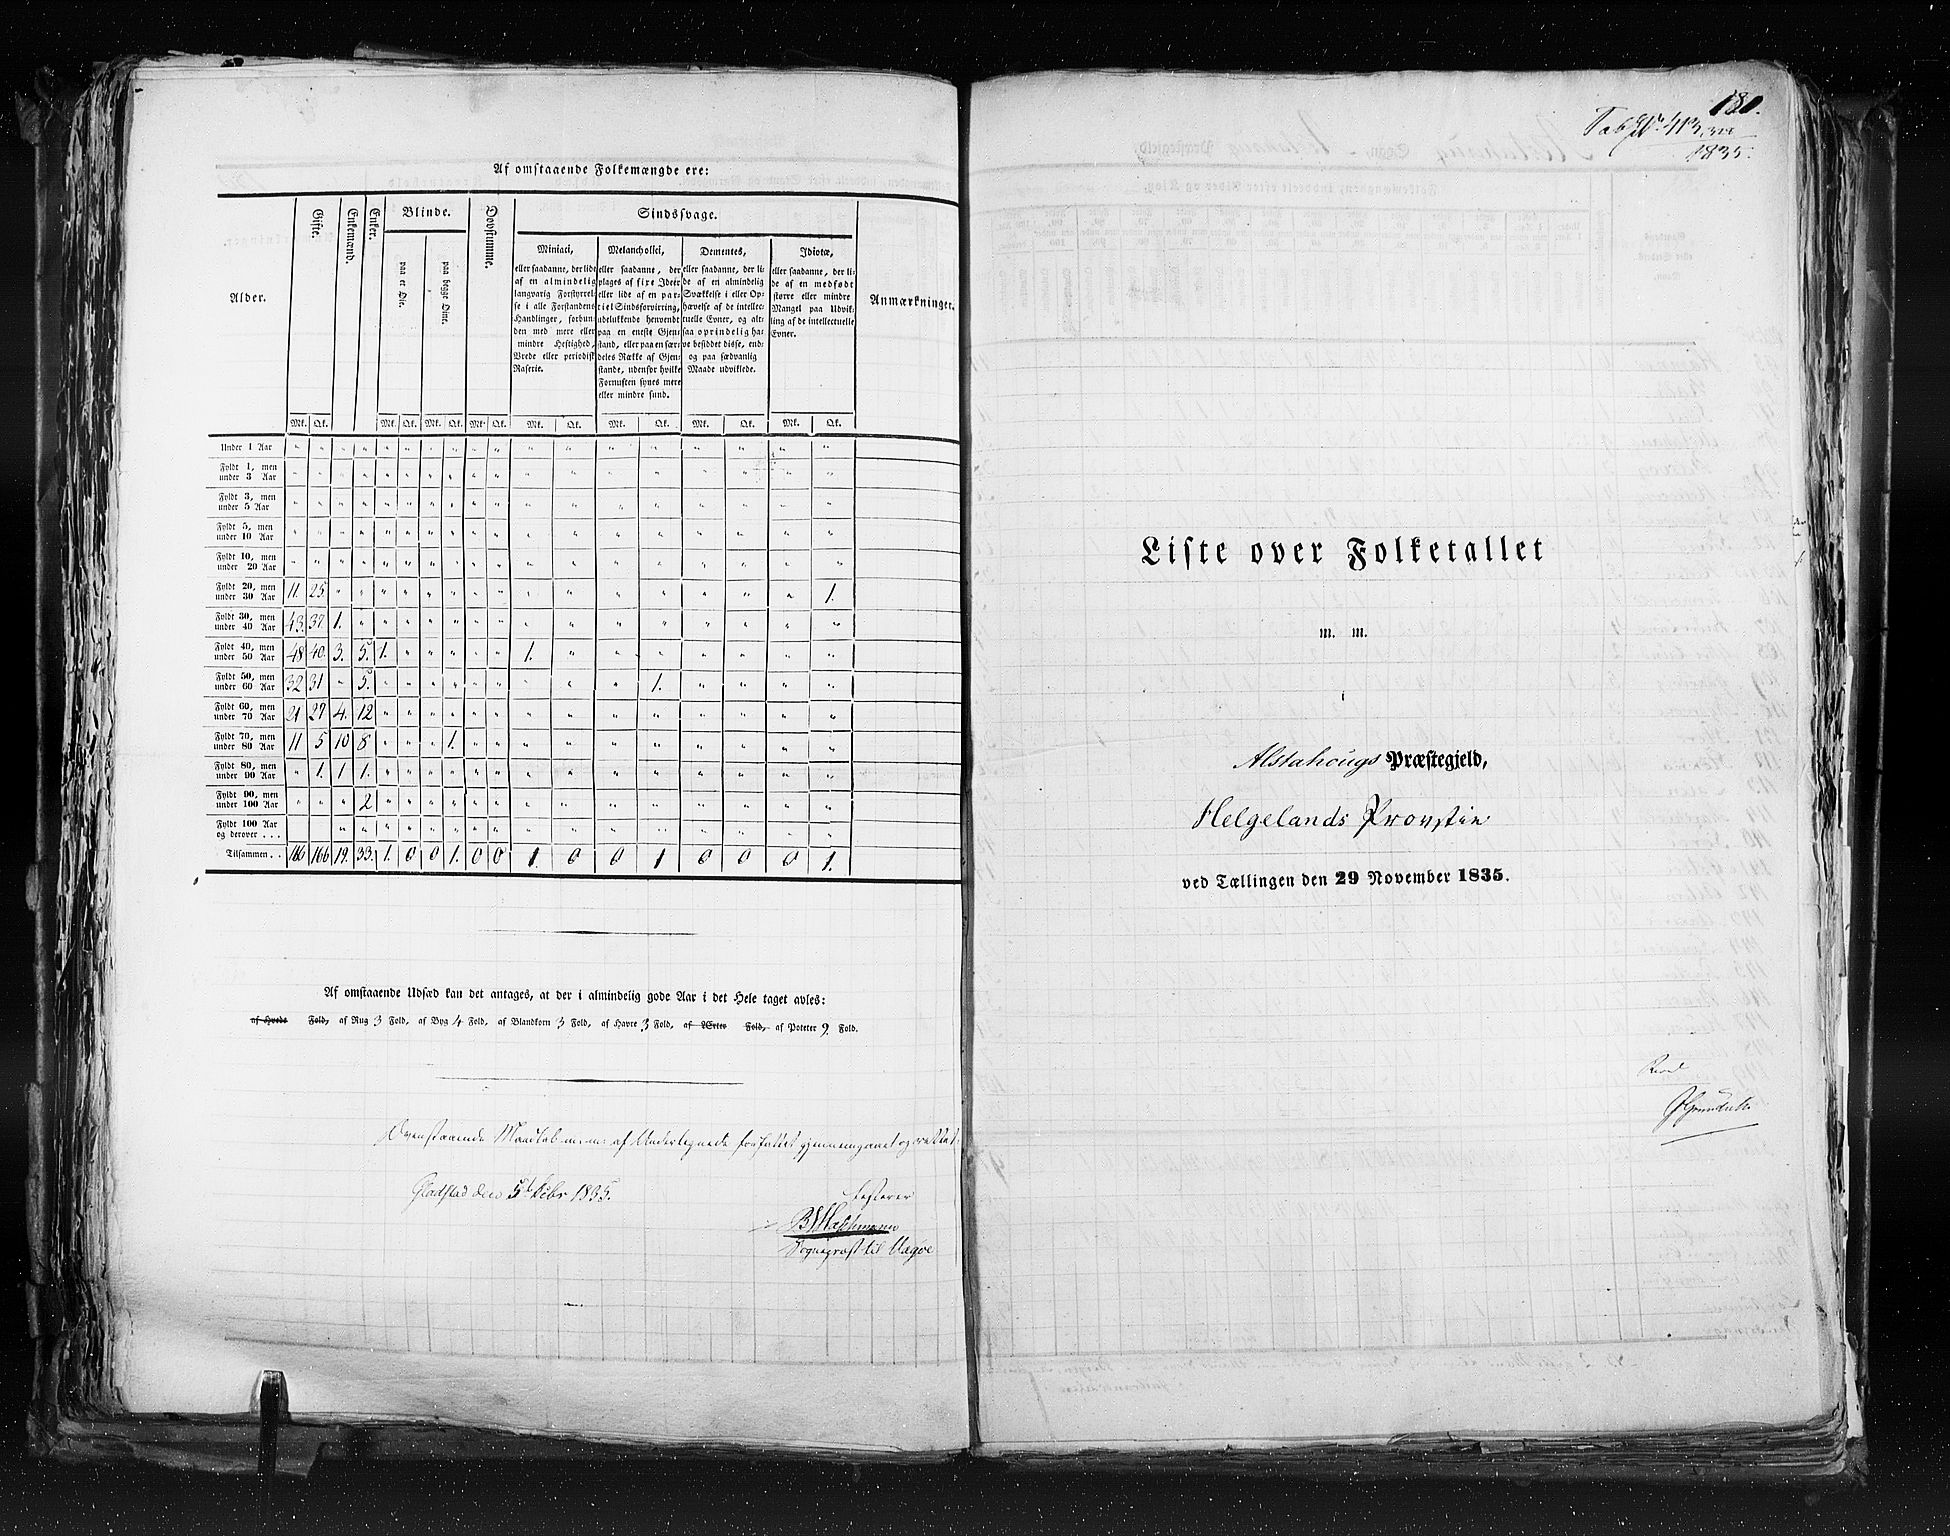 Af omstaaende Folkemængde ere:
Alder.
Gifte.
Enkemænd.
Enker.
Blinde.
paa et Øie.
paa begge Øine.
Døvstumme.
Sindssvage.
Miniaci,
eller saadanne, der lide
af en almindelig
langvarig Forstyrrel-
se i alle Forstandens
Handlinger, forbun-
den med mere eller
mindre Heftighed,
Vrede eller periodisk
Raserie.
Melancholici,
eller saadanne, der
plages af fixe Ideer
eller lide af en par-
tiel Sindsforvirring,
udelukkende henvendt
paa en eneste Gjen-
stand, eller paa en sær-
deles Række af Gjen-
stande, udenfor hvilke
Fornuften synes mere
eller mindre sund.
Dementes,
eller saadanne, der li-
de af en almindelig
Svækkelse i eller Op-
hævelse af de intellec-
tuelle Evner, og alt-
saa oprindelig ha-
ve besiddet disse, end-
og paa sædvanlig
Maade udviklede.
Idiotæ,
eller saadanne, der li-
de af en medfødt
større eller mindre
Mangel paa Udvik-
ling af de intellectuelle
Evner.
Anmærkninger.
Mk. Qk. Mk. Qk. Mk. Qk. Mk. Qk. Mk. Qk. Mk. Qk. Mk. Qk. Mk. Qk.
Under 1 Aar " " " " " " " " " " " " " " " " " "
Fyldt 1, men
under 3 Aar " " " " " " " " " " " " " " " " " "
Fyldt 3, men
under 5 Aar " " " " " " " " " " " " " " " " " "
Fyldt 5, men
under 10 Aar " " " " " " " " " " " " " " " " " "
Fyldt 10, men
under 20 Aar " " " " " " " " " " " " " " " " " "
Fyldt 20, men
under 30 Aar 11. 25 " " " " " " " " " " " " " " " 1.
Fyldt 30, men
under 40 Aar 43. 37. 1. " " " " " " " " " " " " " " "
Fyldt 40, men
under 50 Aar 48 40. 3. 5. 1. " " " " " 1. " " " " " " "
Fyldt 50, men
under 60 Aar 32 31 " 5. " " " " " " " " " 1. " " " "
Fyldt 60, men
under 70 Aar 21 27 4. 12 " " " " " " " " " " " " " "
Fyldt 70, men
under 80 Aar 11 5 10 8 " " " 1. " " " " " " " " " "
Fyldt 80, men
under 90 Aar " 1. 1 1. " " " " " " " " " " " " " "
Fyldt 90, men
under 100 Aar " " " 2 " " " " " " " " " " " " " "
Fyldt 100 Aar
og derover . . . " " " " " " " " " " " " " " " "
Tilsammen . . 166 166 19. 33. 1. 0 0 1. 0 0 1. 0 0 1 0 0 0 1.
Af omstaaende Udsæd kan det antages, at der i almindelig gode Aar i det Hele taget avles:
af Hvede Fold, af Rug 3 Fold, af Byg 4 Fold, af Blandkorn 3 Fold, af Havre 3 Fold, af Ærter Fold, af Poteter 9 Fold.
Ovenstaaende Mandtal m:m: af Undertegnede forfattet gjennemgaaet og rettet.
Gladstad den 5t Febr 1835.
Testerer
Sognepræst til Vegøe
180.
Tab N. 413
1835.
Liste over Folketallet
m. m.
i
Alstahougs Præstegjeld,
Helgelands Provstie
ved Tællingen den 29 November 1835.